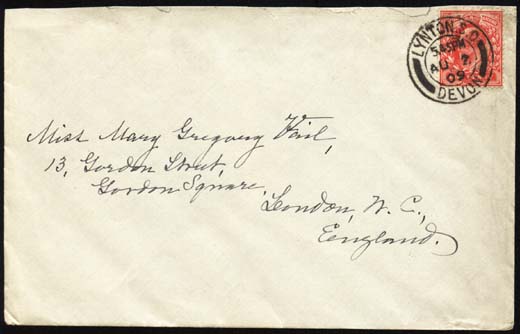 LYNTON S.O.
5.45PM
AU 7
09
DEVON
Miss Mary Gregory Vail,
13, Gordon Street,
Gordon Square,
London, W. C.,
England.